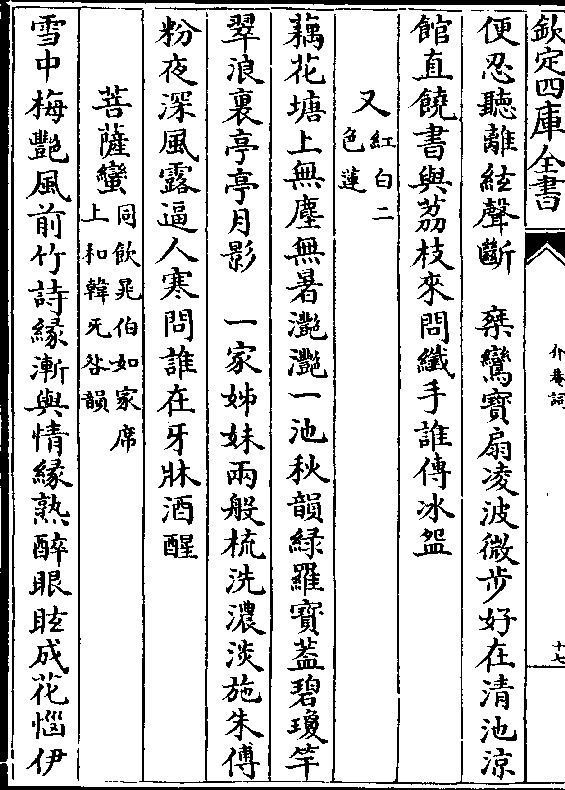 欽定四庫全書
介菴詞
十七
便忍聽離絃聲斷　乘鸞寶扇凌波微步好在清池涼
館直饒書與荔枝來問纖手誰傳冰盌
又紅白二
色蓮
藕花塘上無塵無暑灔灔一池秋韻綠羅寶蓋碧瓊竿
翠浪裏亭亭月影　一家姊妹兩般梳洗濃淡施朱傅
粉夜深風露逼人寒問誰在牙牀酒醒
菩薩蠻同飲晁伯如家席
上和韓旡咎韻
雪中梅艷風前竹詩緣漸與情緣熟醉眼眩成花惱伊